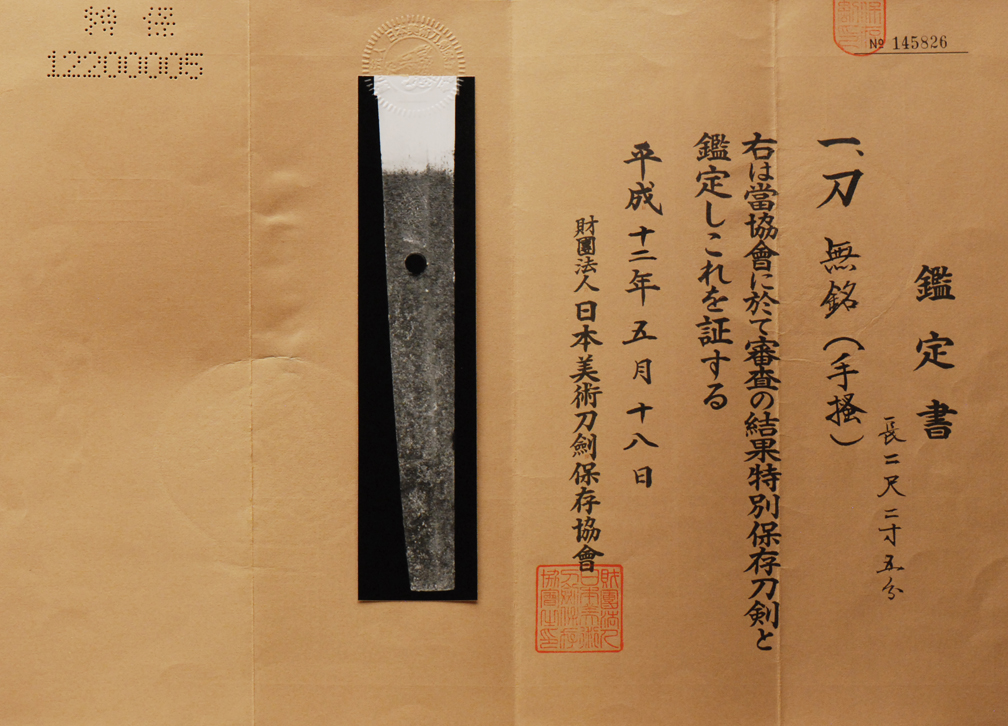 鑑定書
長二尺二寸五分
一、刀 無銘(手掻)
右は當協會に於て審査の結果特別保存刀剣と
鑑定しこれを証する
平成十二年五月十八日
財團法人日本美術刀劍保存協會
№ 145826
特保
12200005